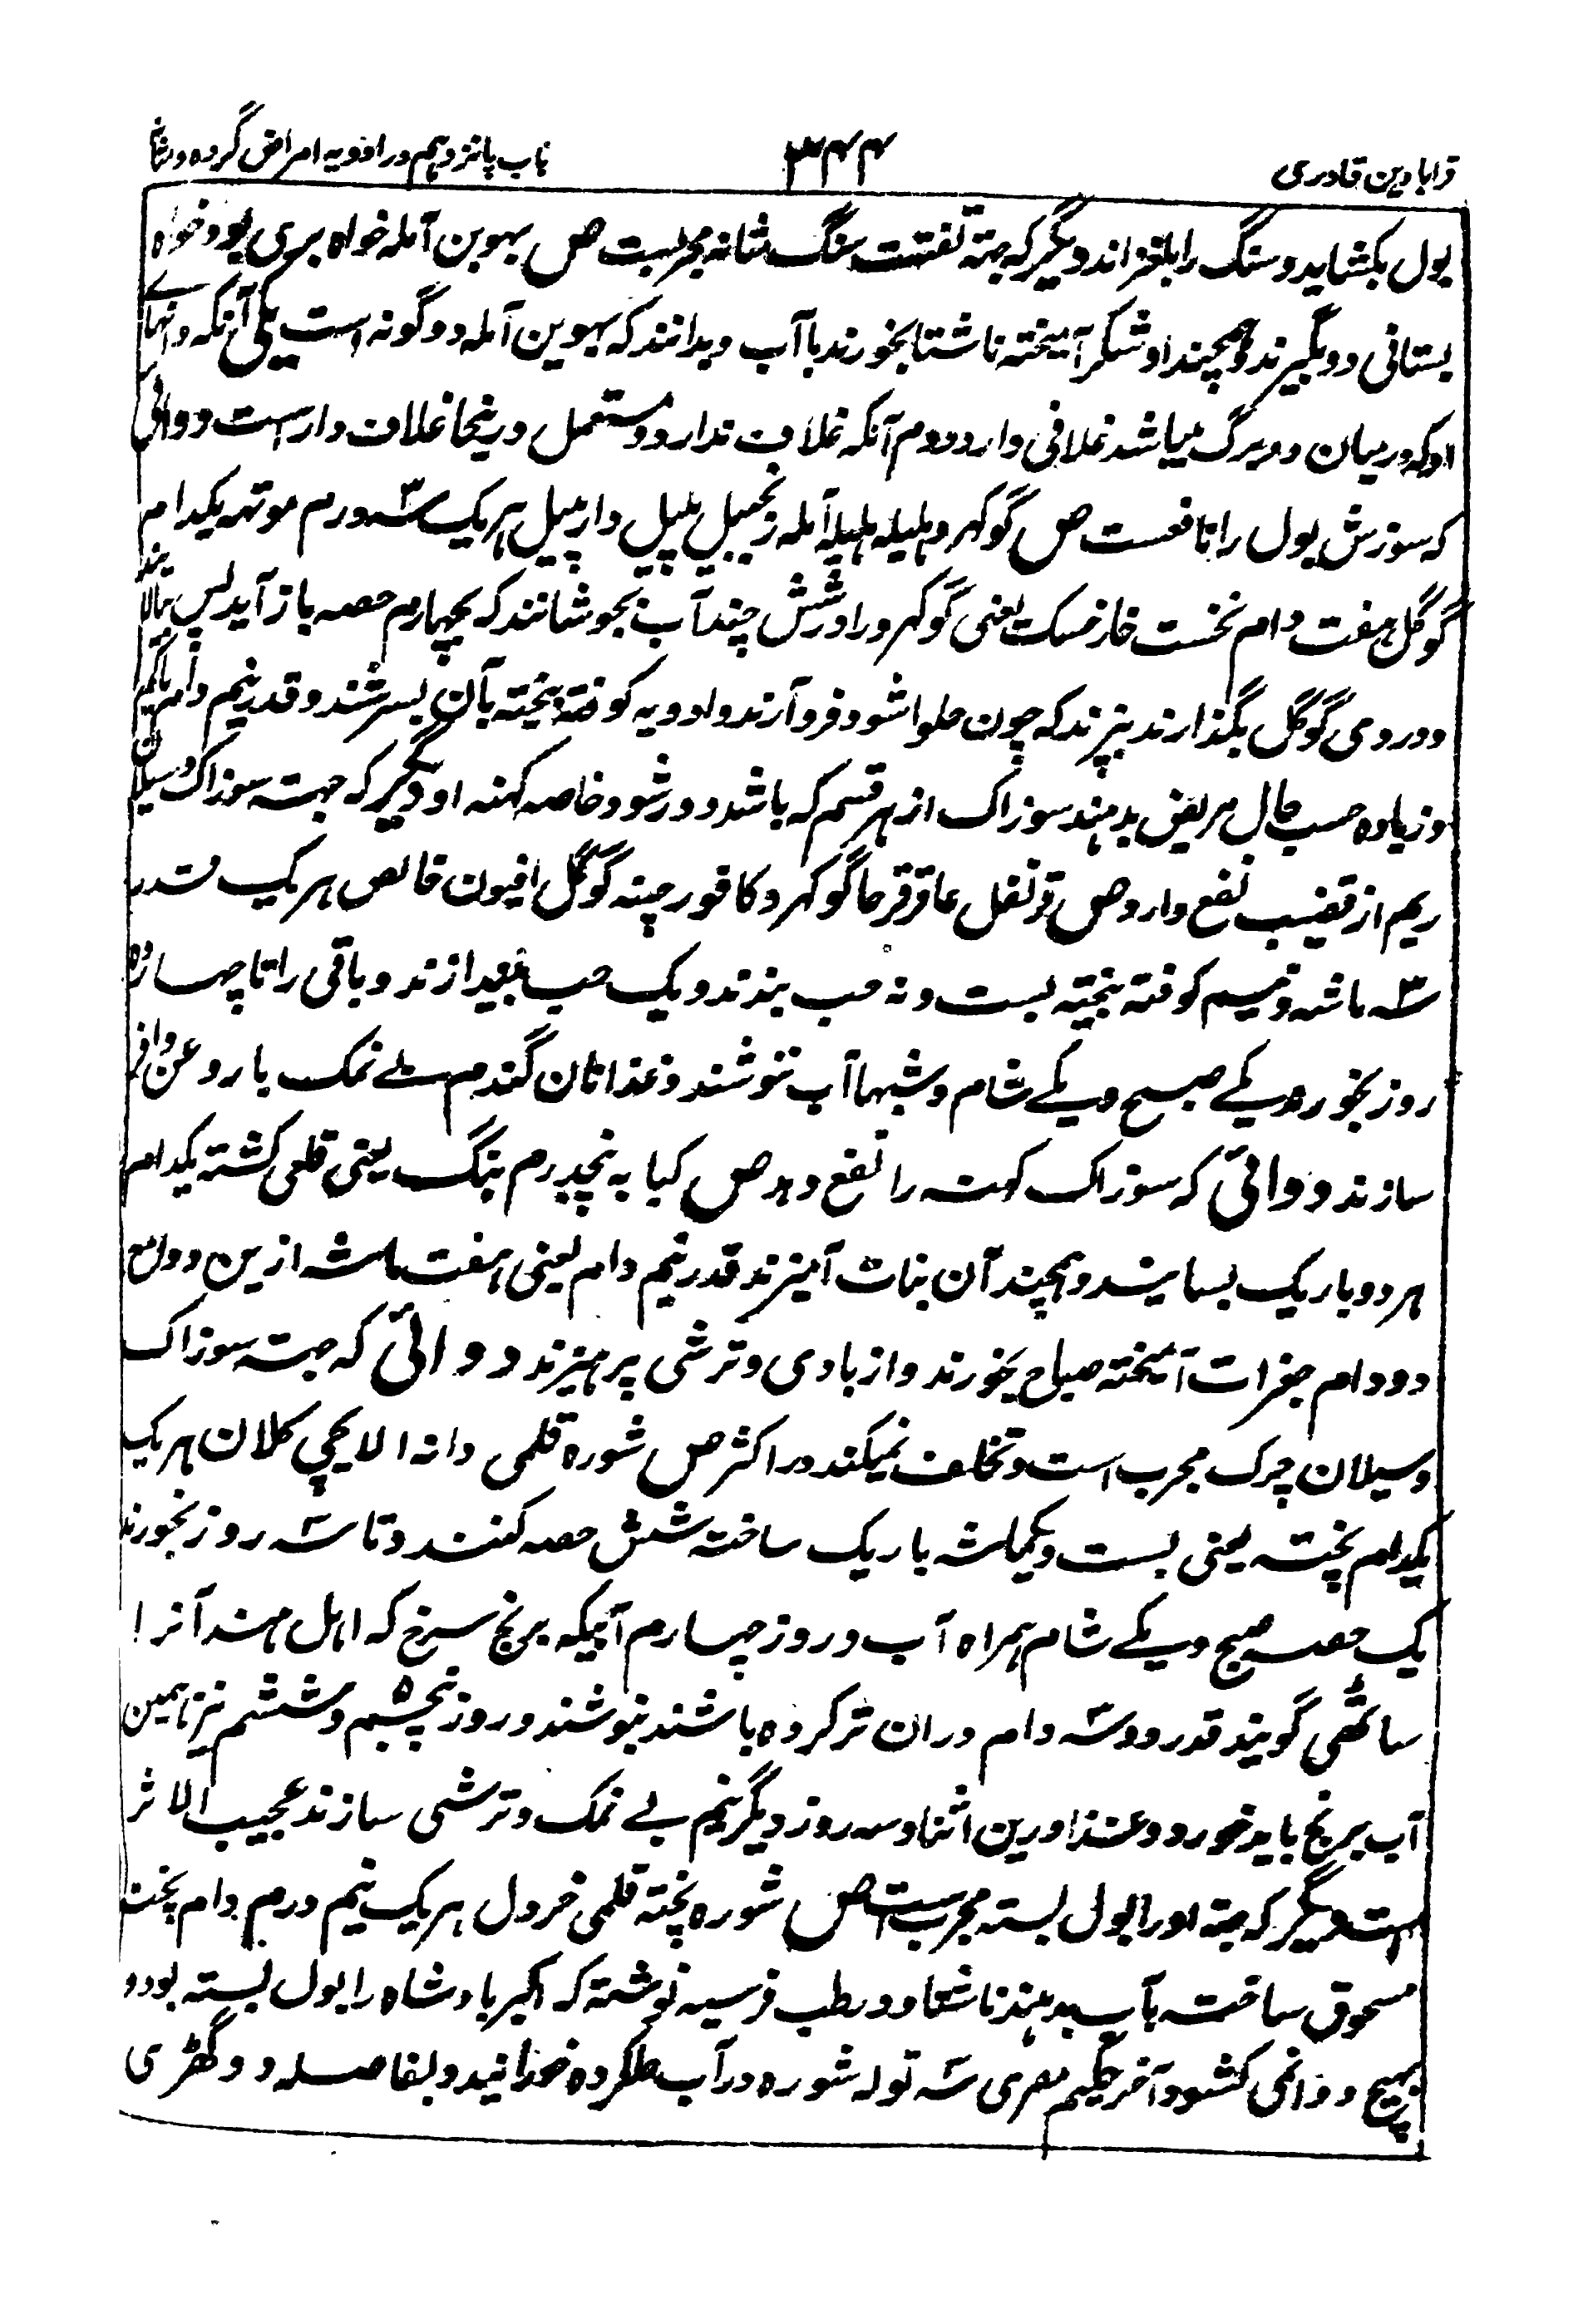 قرابادین قادری ۳۴۴ باب پانزدهم در ادویه امراض گرده و مثانه
بول بکشاید و سنگ را بلغزاند دیگر که جهة تفتت سنگ مثانه مجربست ص بهوین آمله خواه بری بود خواه
بستانی دو بگیرند و همچند او شکر آمیخته ناشتا بخورند با آب و بدانند که بهوین آمله دو گونه است یکی آنکه دانهای
او که در میان دو برگ میباشد غلافی دارد دوم آنکه غلاف ندارد و مستعمل درینجا غلاف دارست دوائی
که سوزش بول را نافعست ص گوکهرو هلیله بلیله آمله زنجبیل پیپل دارپیپل هر یک سه درم موتهه یکدام
گوگل هفت دام نخست خارخسک یعنی گوکهرو را در شش چند آب بجوشانند که چهارم حصه باز آید پس بپالایند
و در وی گوگل بگذارند بپزند که چون حلوا شود فرو آرند و ادویه کوفته بیخته بآن بسرشند و قدر نیم دام یا کم
و زیاده حسب حال مریض بدهند سوزاک از هر قسم که باشد دور شود خاصه کهنه او دیگر که جهت سوزاک و سیلان
ریم از قضیب نفع دارد ص قرنفل عاقرقرحا گوکهرو کافور چینه گوگل افیون خالص هر یک قدر
سه ماشه و نیم کوفته بیخته بست و نه حب بندند و یک حب بیندازند و باقی را تا چهارده
روز بخورد یکے صبح و یکے شام و شبها آب ننوشند و غذا نان گندم بے نمک با روغن وافر
سازند دوائی که سوزاک کهنه را نفع دهد ص کبابه پنجدرم بنگ یعنی قلعی کشته یکدام
هر دو باریک بسایند و همچند آن نبات آمیزند قدر نیم دام یعنی هفت ماشه ازین دوا مع
دو دام جغرات آمیخته صباح بخورند و از بادی و ترشی پرهیزند دوائی که جهته سوزاک
و سیلان چرک مجرب است و تخلف نمیکند در اکثر ص شوره قلمی دانه الایچی کلان هر یک
یکدام پخته یعنی بست و یکماشه باریک ساخته شش حصه کنند و تا سه روز بخورند
یک حصه صبح و یکے شام همراه آب و روز چهارم آبیکه برنج سرخ که اهل هند آنرا
ساٹھی گویند قدر دو سه دام دران تر کرده باشند بنوشند و روز پنجم و ششم نیز همین
آب برنج باید خورد و غذا درین اثنا و سه روز دیگر نیم بے نمک و ترشی سازند عجیب الاثر
است دیگر که جهة ادرار بول بسته مجربست ص شوره پخته قلمی خردل هر یک نیم درم بدام پخته
مسحوق ساخته بآب بدهند ناشتا و در طب فرسیه نوشته که اکبر بادشاه را بول بسته بود و
بهیچ دوائی نکشود آخر حکیم مصری سه توله شوره در آب حل کرده خورانید و بفاصله دو گھڑی